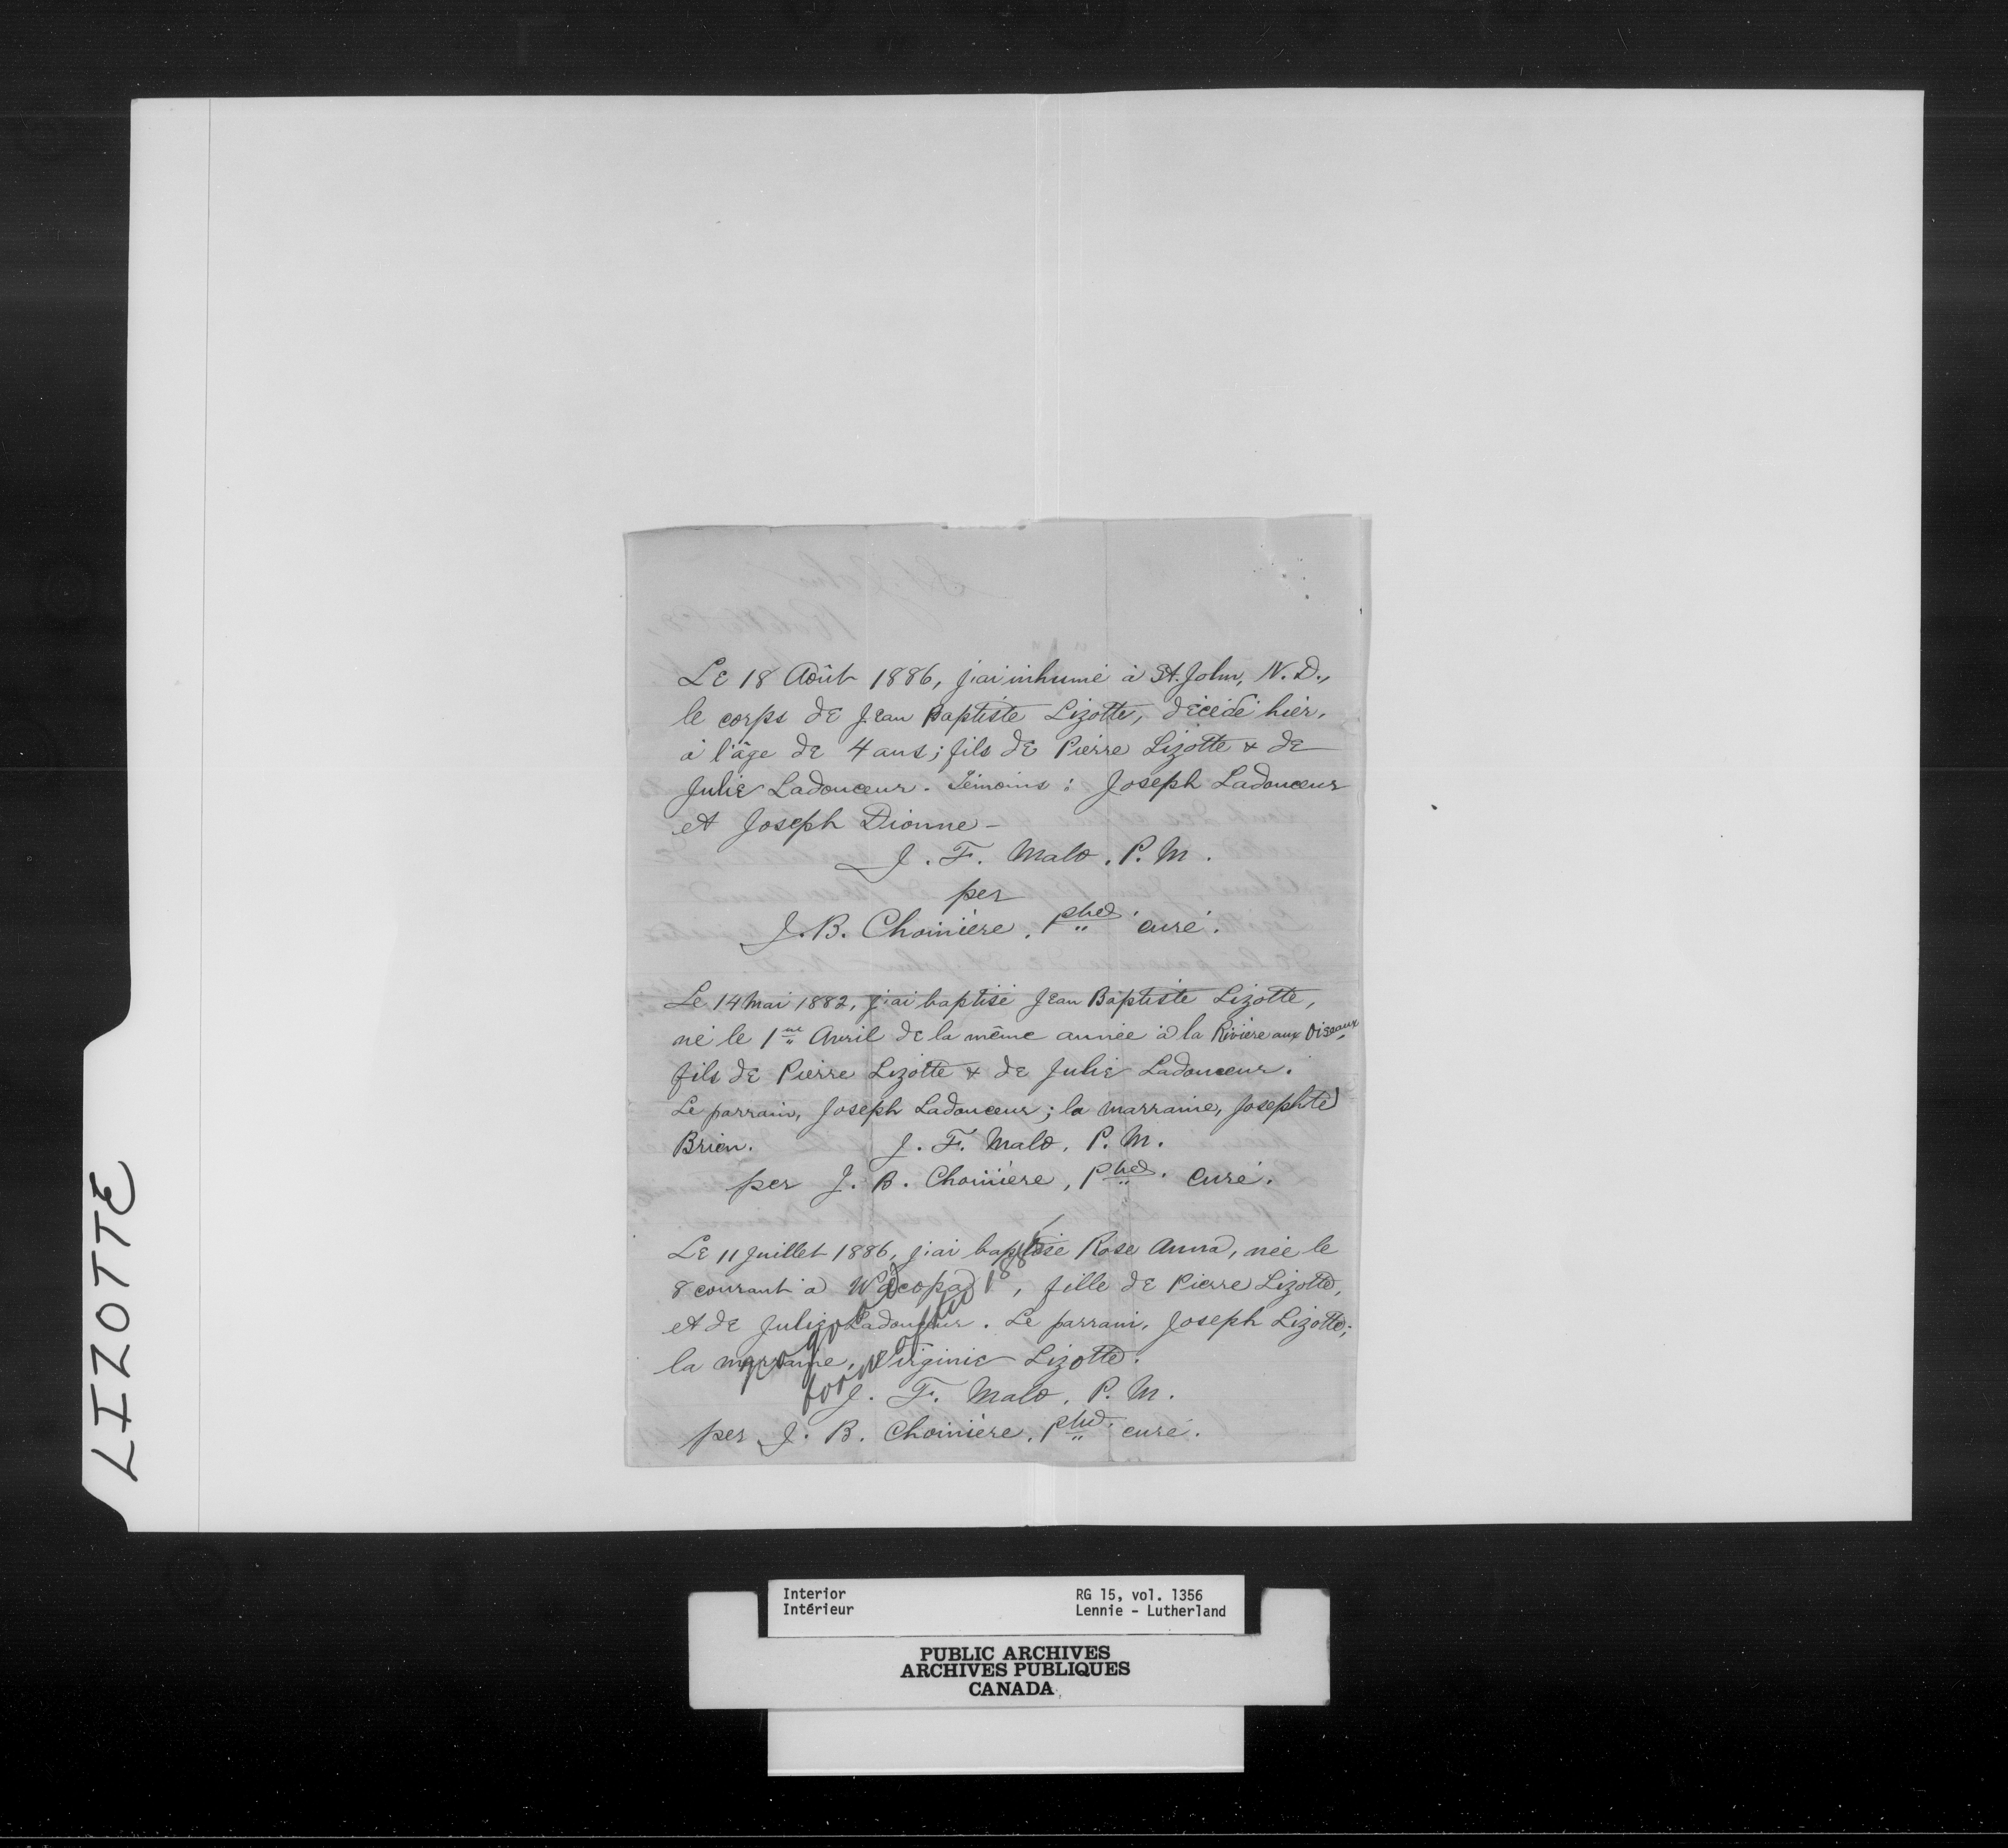 Le 18 Août 1886, j'ai inhumé à St. John, N. D.,
le corps de Jean Baptiste Lizotte, décédé hier,
à l'âge de 4 ans; fils de Pierre Lizotte & de
Julie Ladouceur. Témoins: Joseph Ladouceur
et Joseph Dionne -
J. F. Malo, P. M.
per
J. B. Chominère, curé.
Le 14 Mai 1882, j'ai baptisé Jean Baptiste Lizotte,
né le 1er Avril de la même année à la Rivière aux Oiseaux,
fils de Pierre Lizotte & de Julie Ladouceur.
Le parrain, Joseph Ladouceur; la marraine, Josephte
Brien. J. F. Malo, P. M.
per J. B. Choinière, curé.
Le 11 Juillet 1886, j'ai baptisé Rose Anna, née le
8 courant à Wacopa, fille de Pierre Lizotte,
et de Julie Ladouceur. Le parrain, Joseph Lizotte;
la marraine, Virginie Lizotte.
no good
born after 1885
J. F. Malo, P. M.
per J. B. Choinière, curé.
LIZOTTE
Interior RG 15, vol. 1356
Intérieur Lennie - Lutherland
PUBLIC ARCHIVES
ARCHIVES PUBLIQUES
CANADA